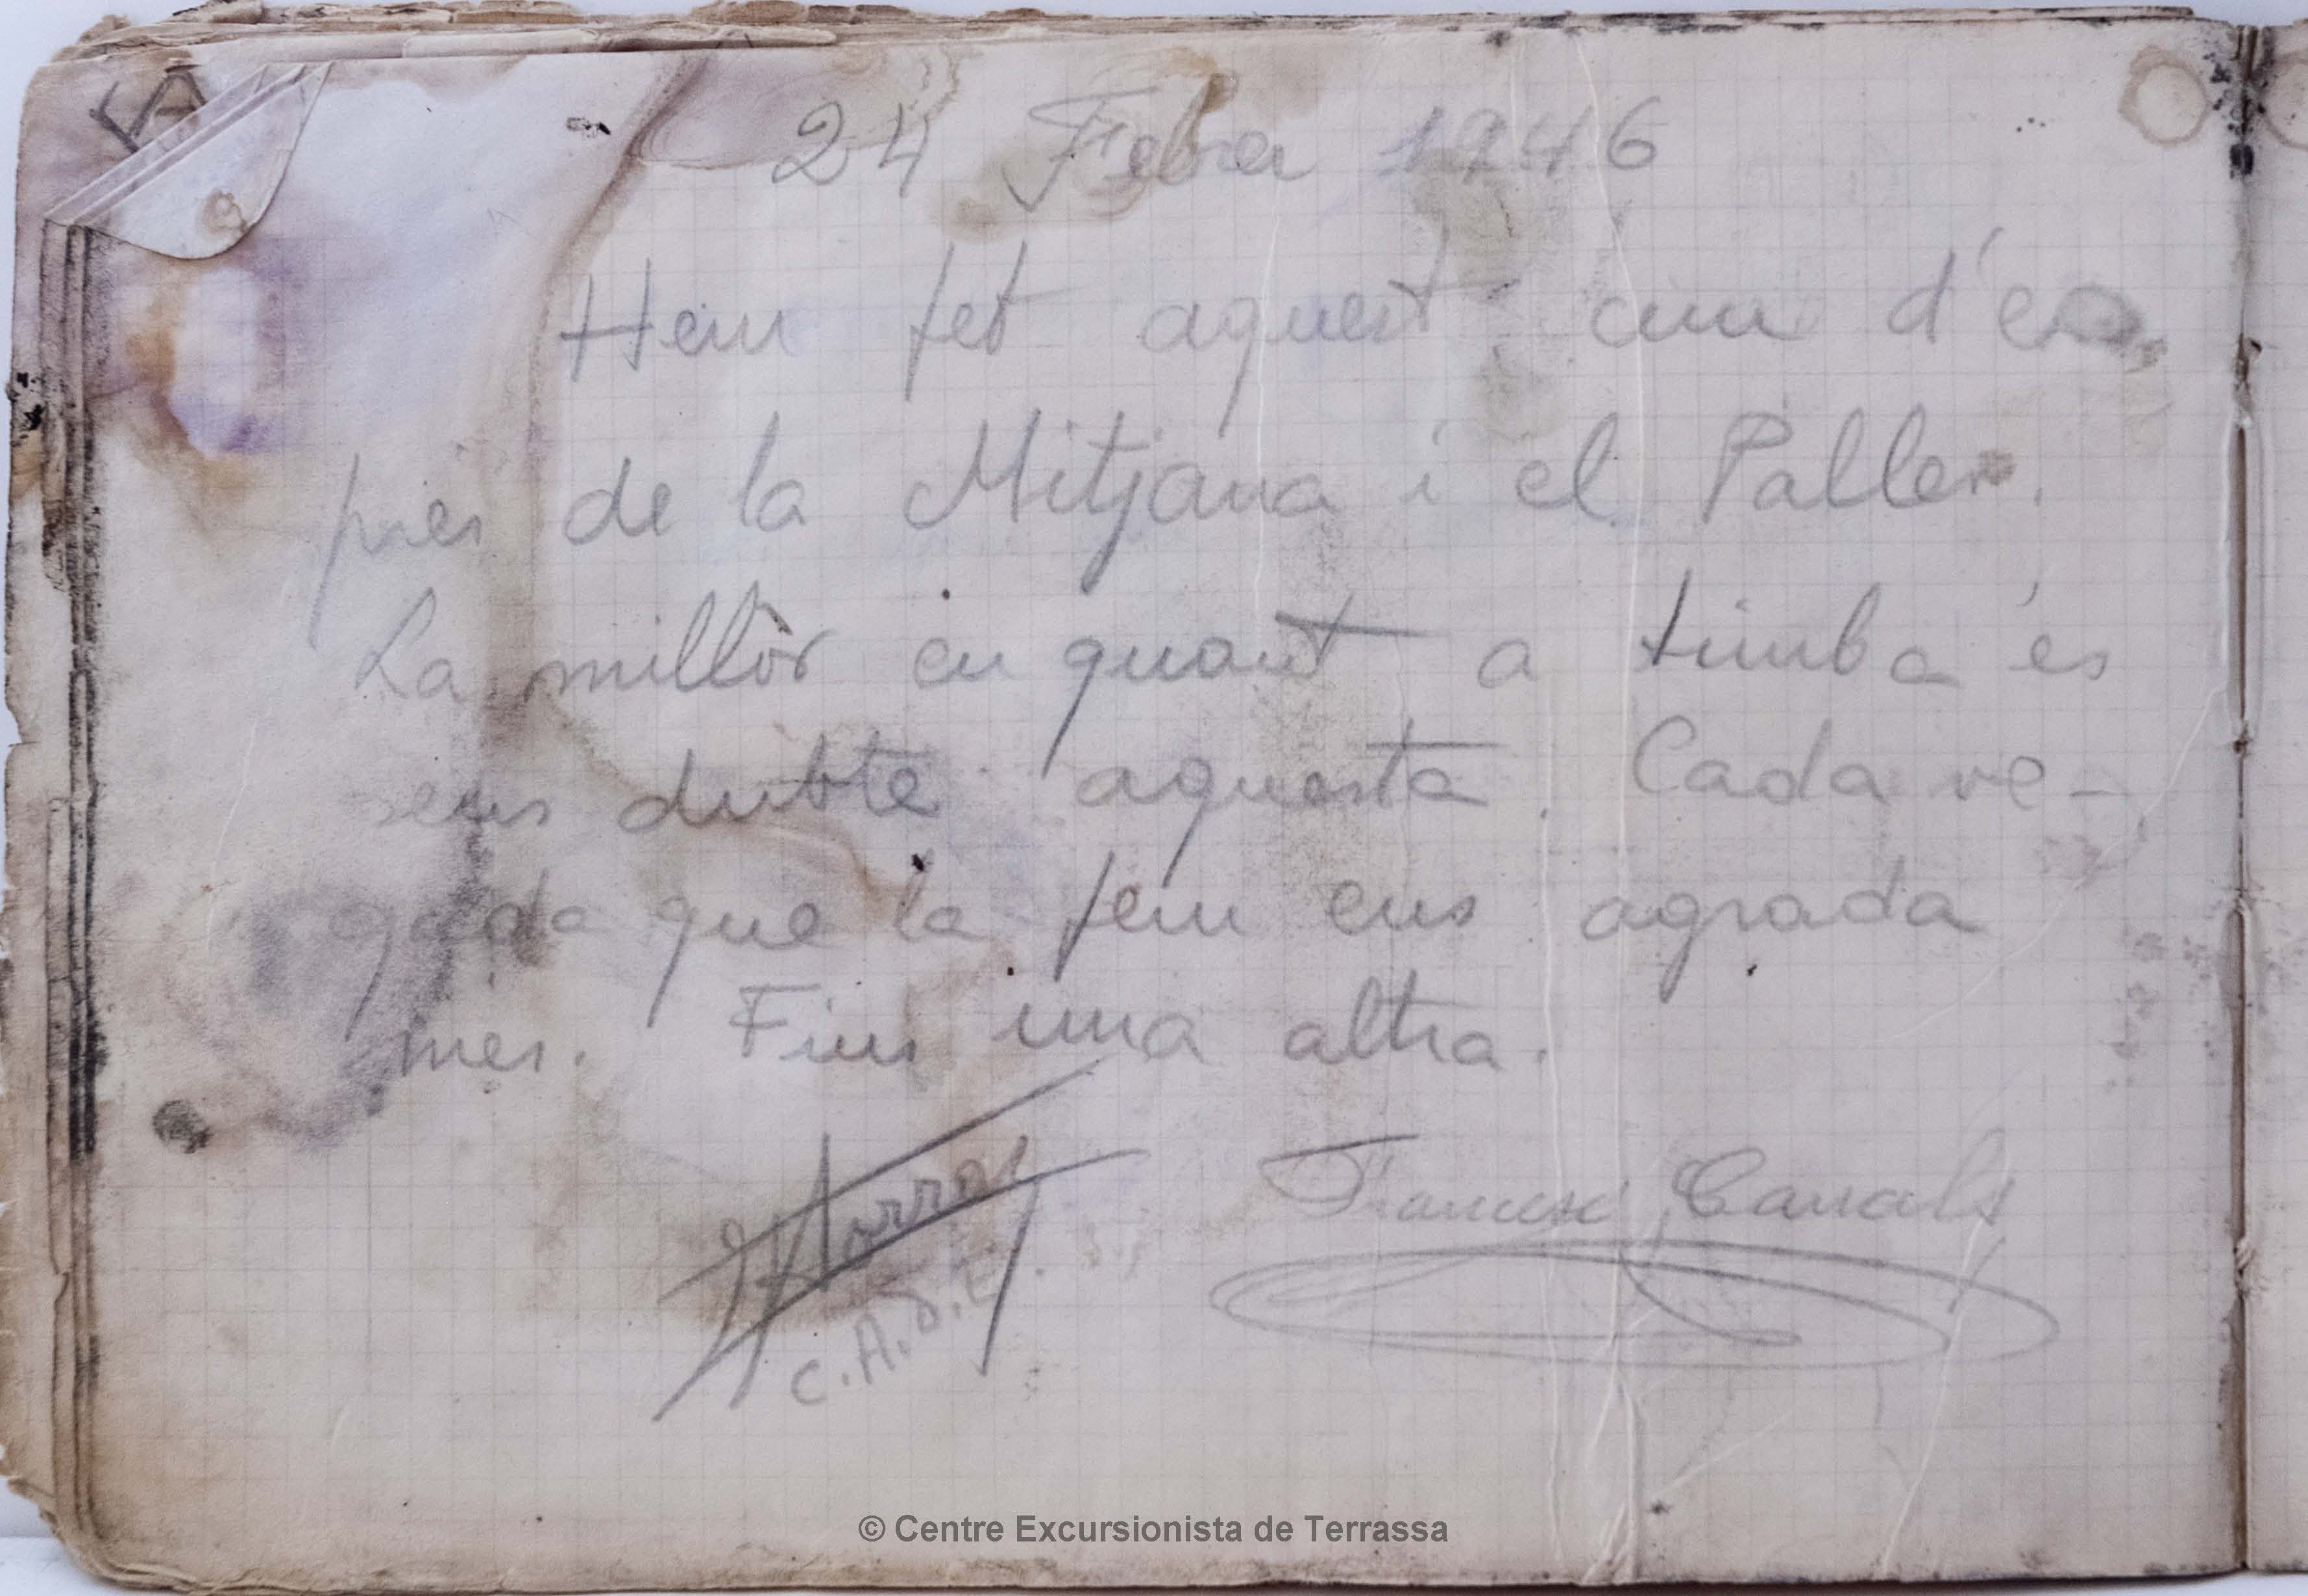 24 Febrer 1946
Hem fet aquest cim d'es
prés de la Mitjana i el Paller.
La millor en quant a timba és
sens dubte aquesta. Cada ve-
gada que la fem ens agrada
més. Fins una altra.
Francesc Canals
C.A.d.T.
© Centre Excursionista de Terrassa